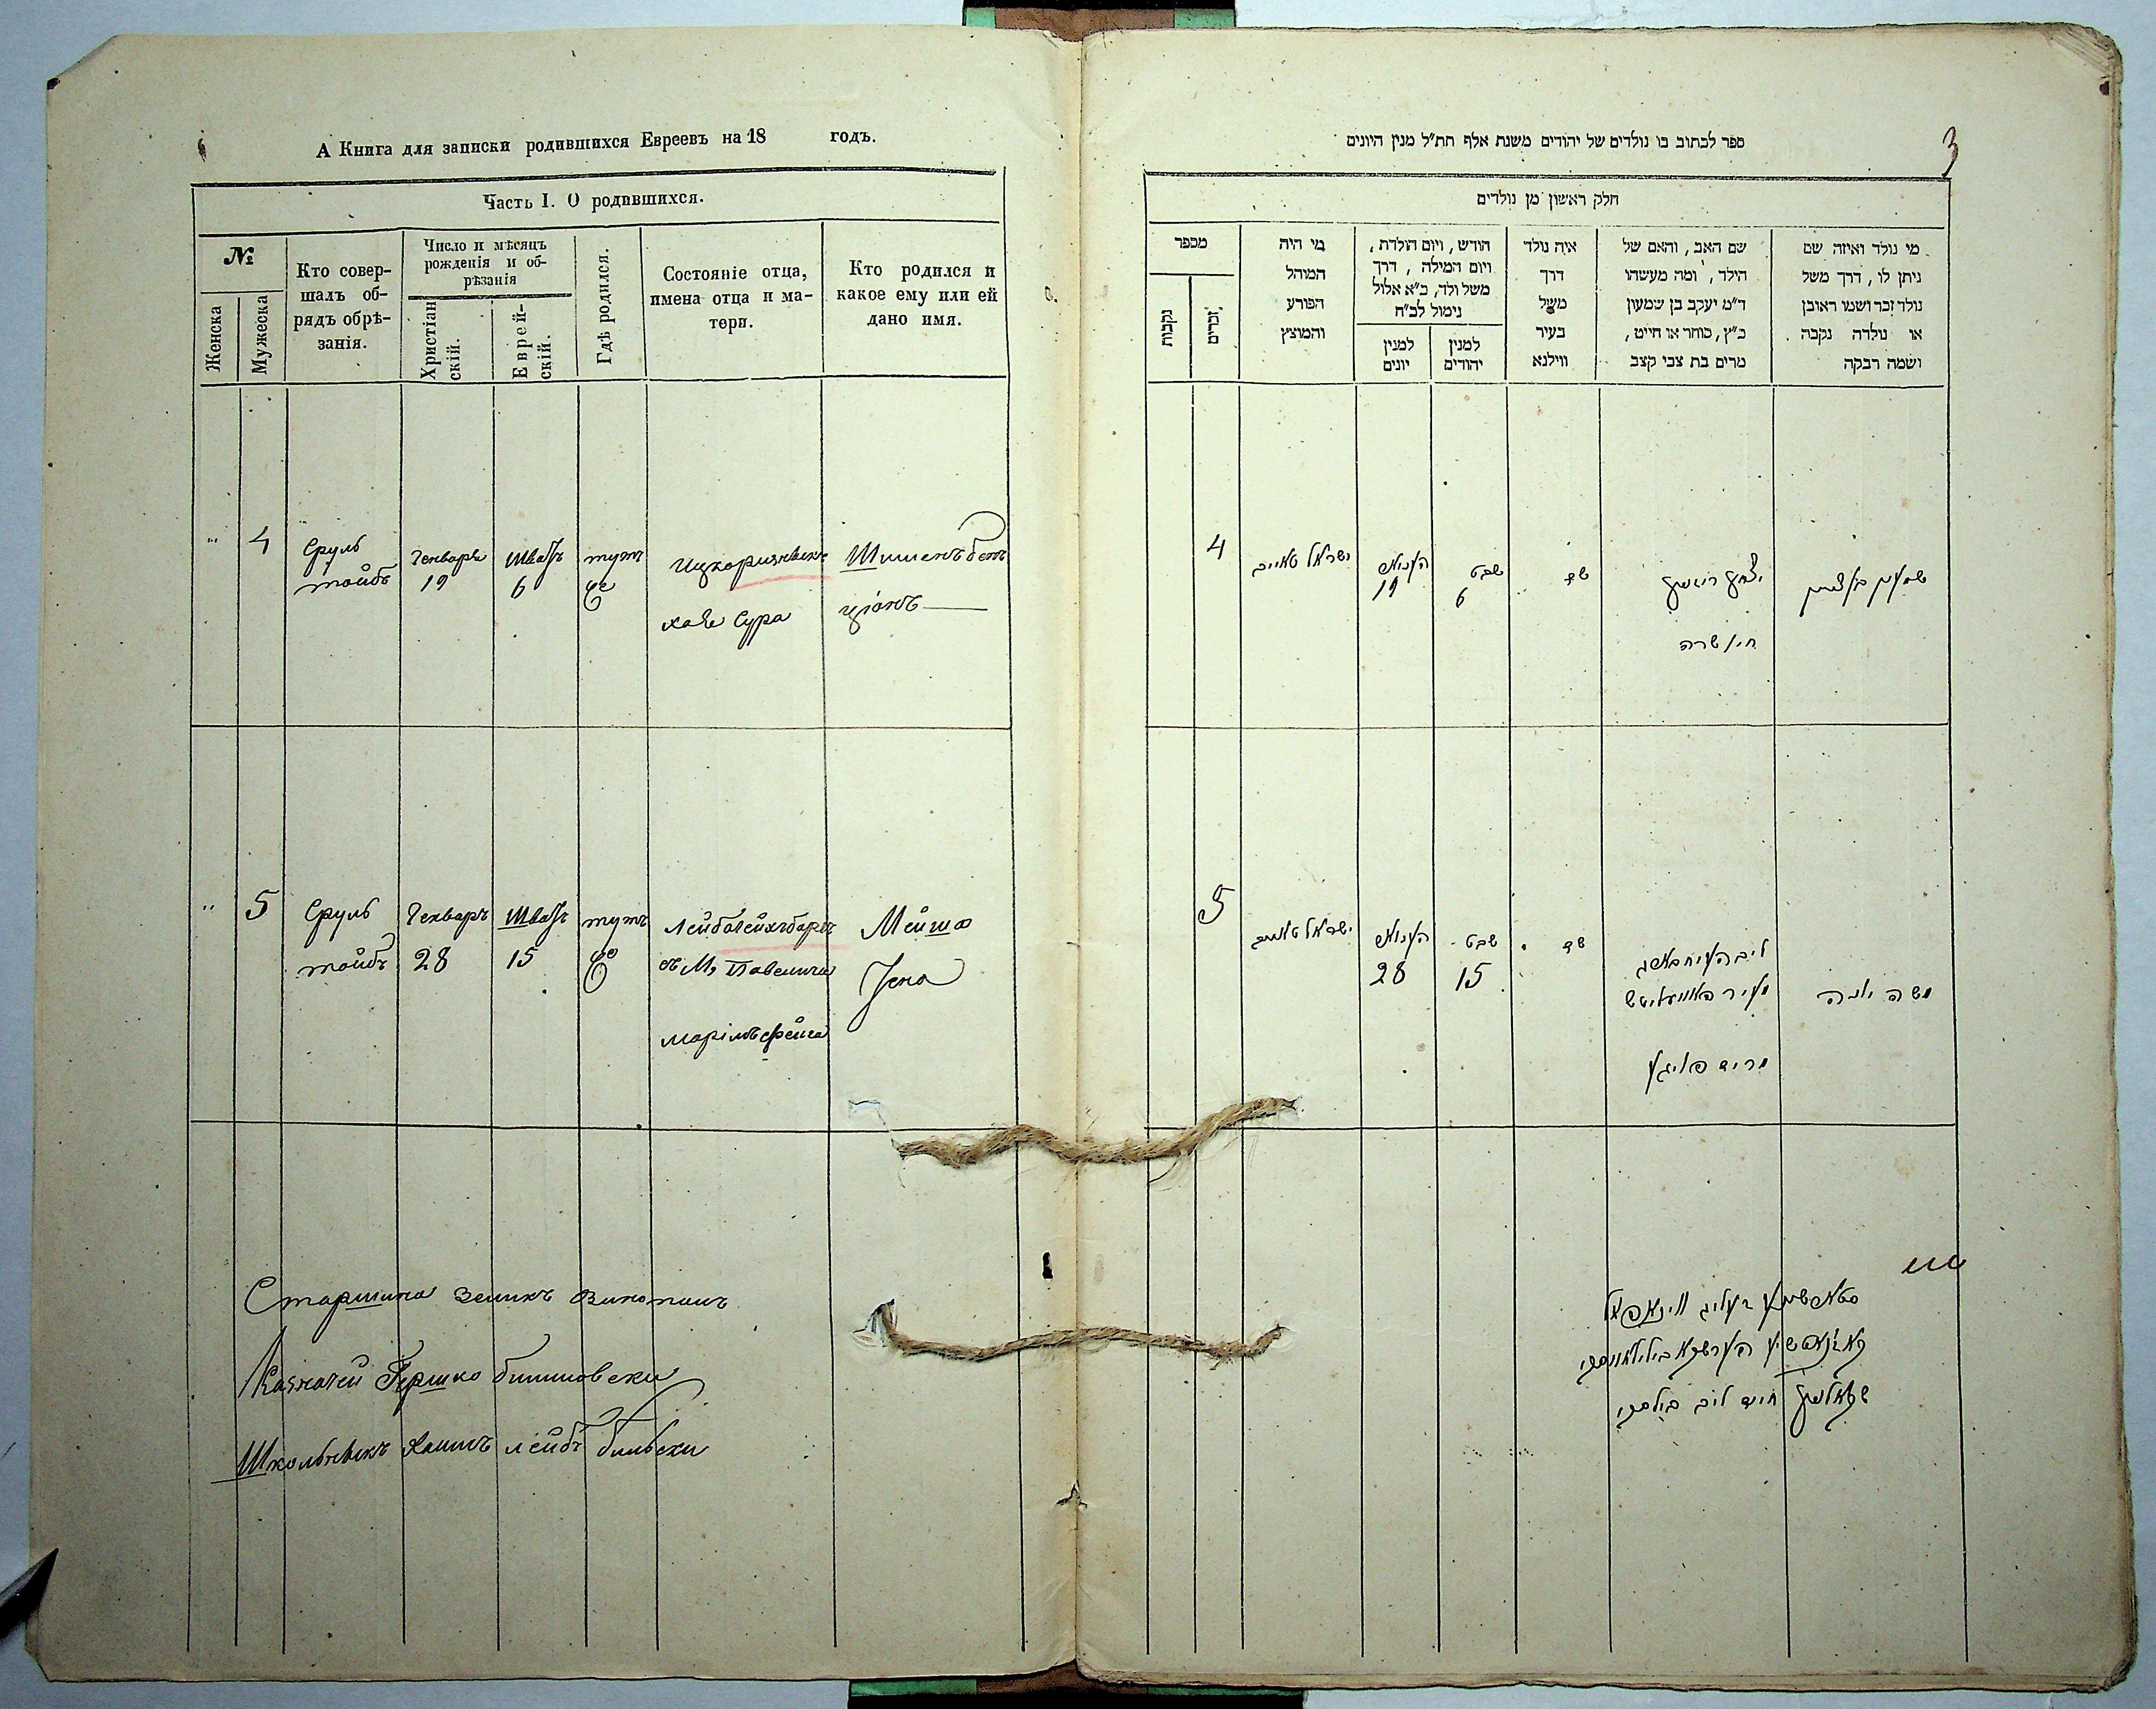 А Книга для записки родившихся Евреевъ на 18 годъ.
Часть I. О родившихся.
№
Женска
Мужеска
Кто совер-
шалъ об-
рядъ обрѣ-
занія.
Число и мѣсяцъ
рожденія и об-
рѣзанія
Христіан
скій.
Еврей-
скій.
Гдѣ родился.
Состояніе отца,
имена отца и ма-
тери.
Кто родился и
какое ему или ей
дано имя.
4
Сруль
тойбъ
Генваря
19
Шватъ
6
тутъ
хаве Сура
Шименъ бенъ
ціонъ
5
Сруль
тойбъ
Генваръ
28
Шватъ
15
тутъ
Мейша
Іена
Старшина Зеликъ
Казначей Гершко
Школьникъ Хаимъ лейбъ бильски
3
ספר לכתוב בו נולדים של יהודים משנת אלף תת״ל מנין היונים
חלק ראשון מן נולדים
מספר
נקבות
זכרים
מי היה
המוהל
הפורע
והמוצץ
חודש, ויום הולדת,
ויום המילה, דרך
משל ולד, כ״א אלול
נימול לכ״ח
למנין
יונים
למנין
יהודים
איה נולד
דרך
משל
בעיר
ווילנא
שם האב, והאם של
הילד, ומה מעשהו
ד״מ יעקב בן שמעון
כ״ץ, סוחר או חייט,
מרים בת צבי קצב
מי נולד ואיזה שם
ניתן לו, דרך משל
נולד זכר ושמו ראובן
או נולדה נקבה
ושמה רבקה
4
ישראל טאייב
19
שבט
6
שם
יצחק
חי׳ שרה
שמעון בן ציון
5
ישראל טאייב
28
שבט
15
שם
משה יונה
חיים ליב בילסקי